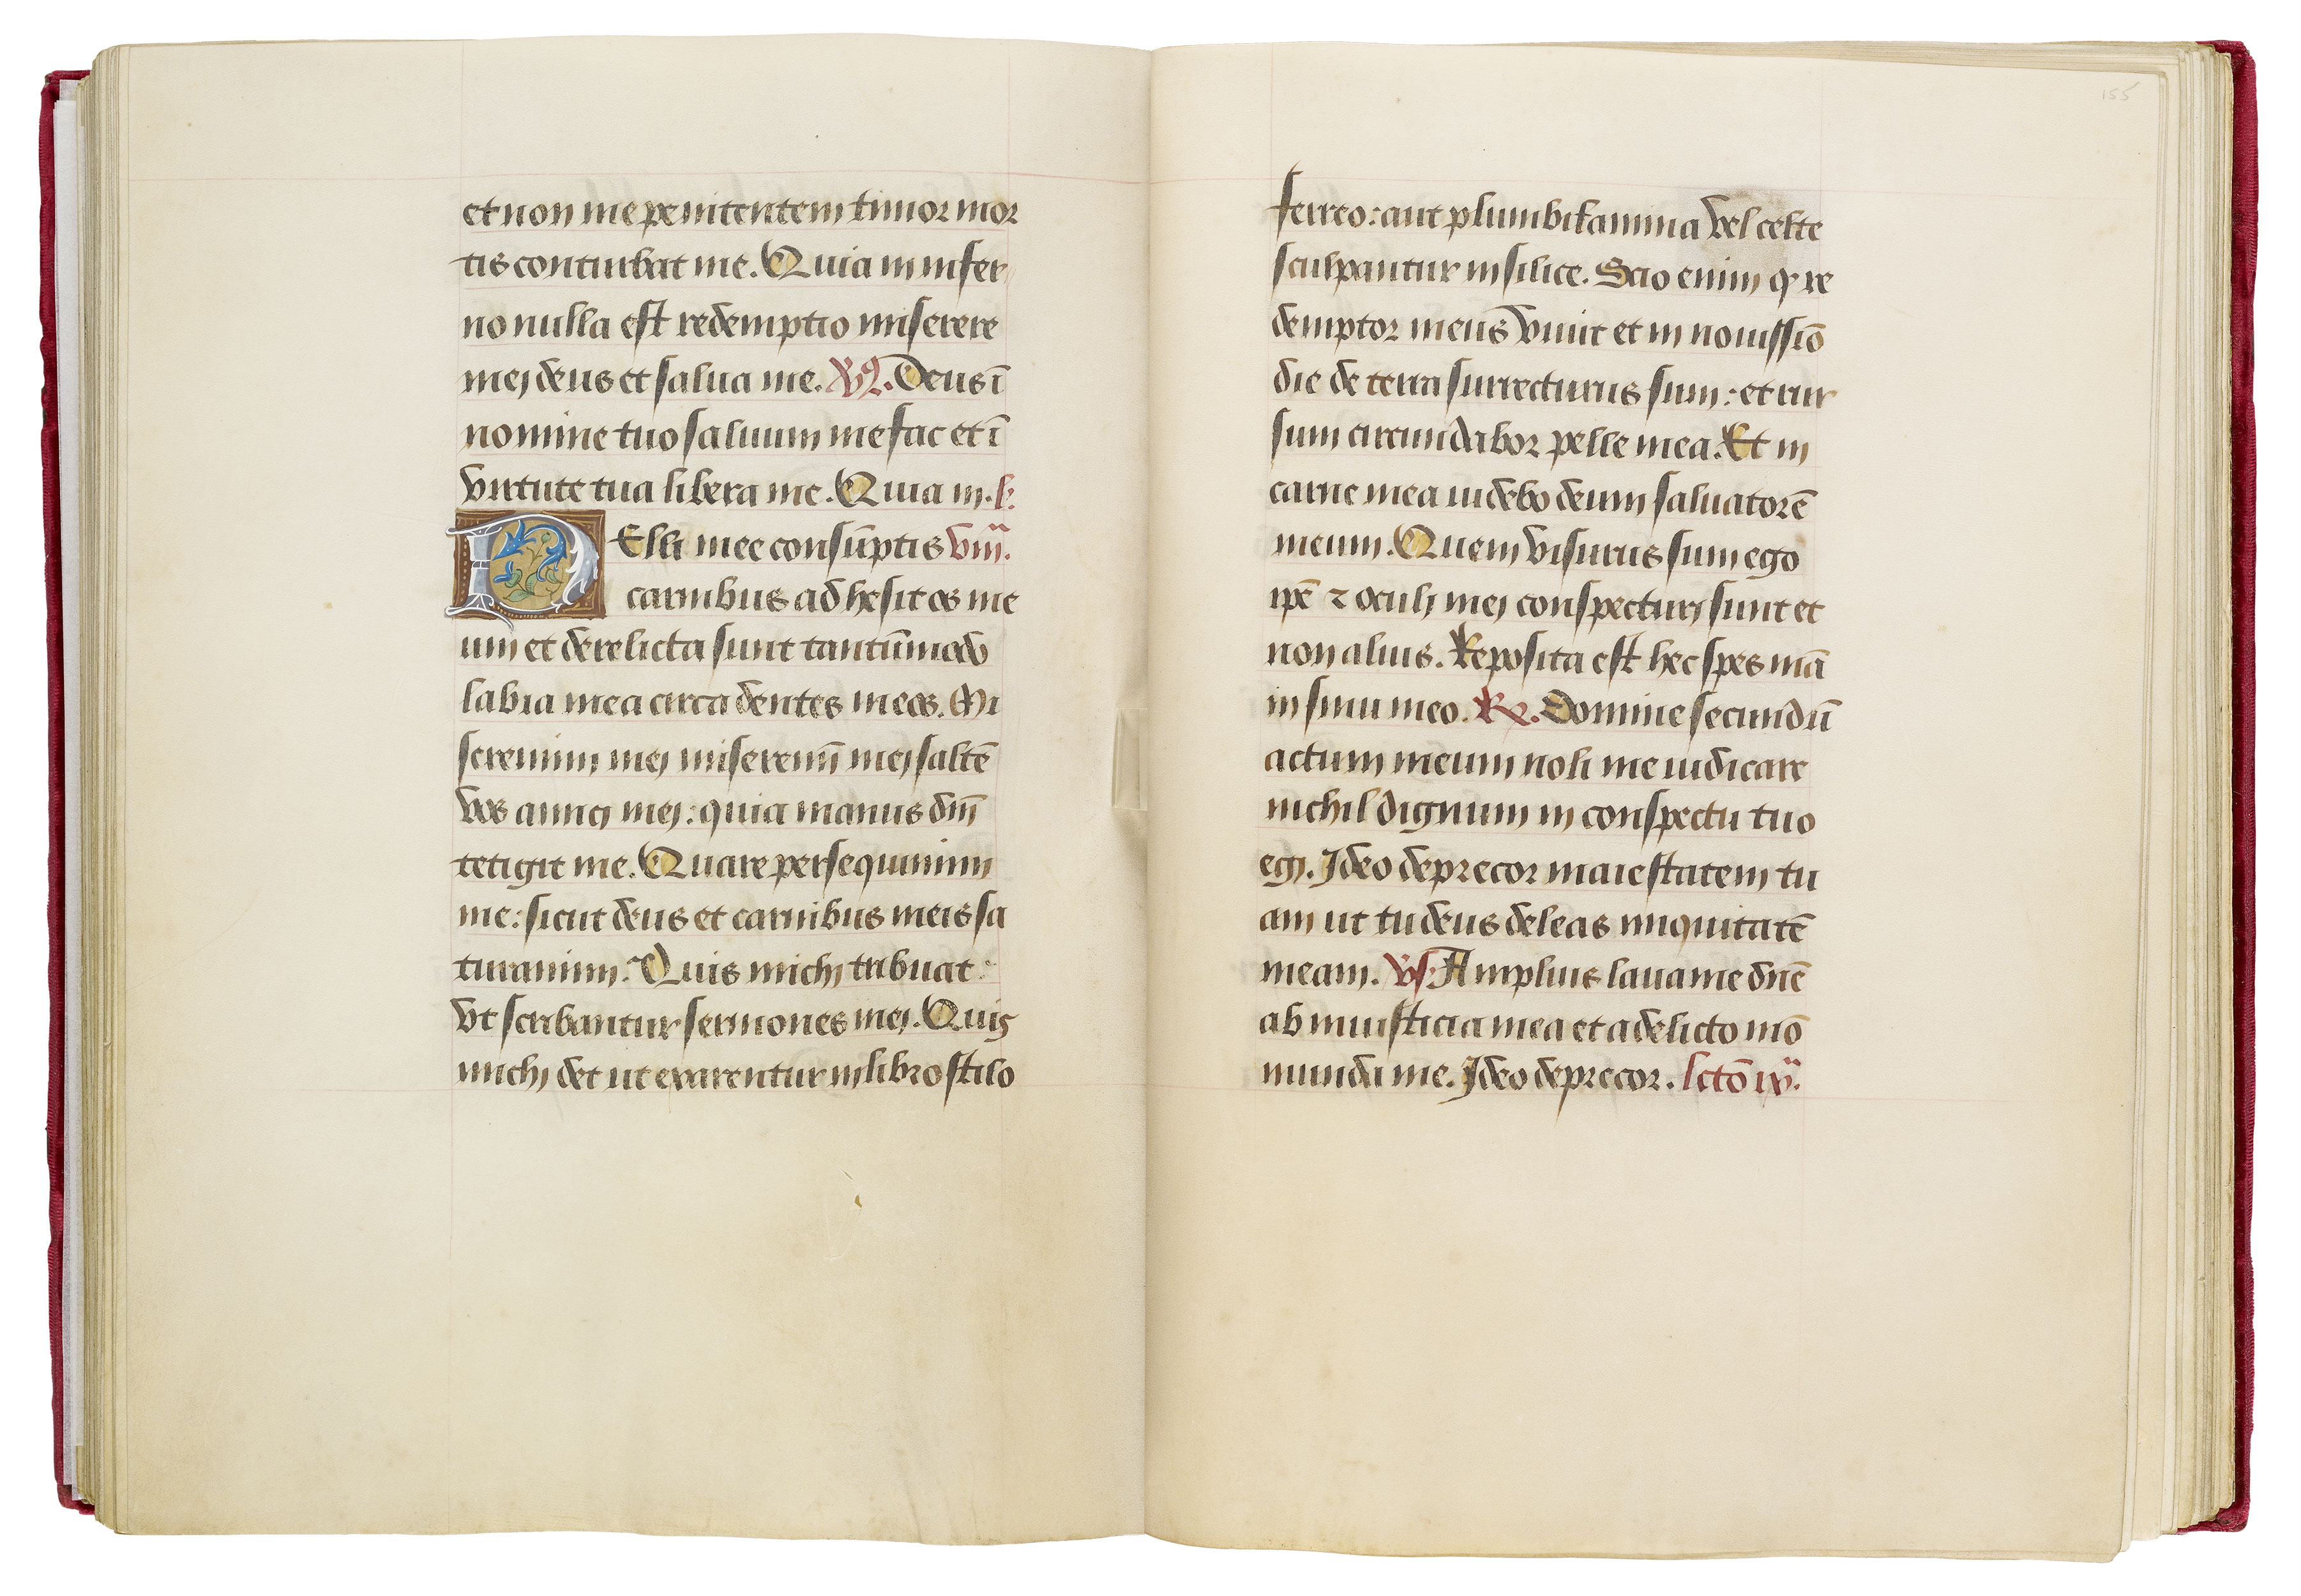 et non me penitentem timor mor
tis conturbat me. Quia in infer
no nulla est redemptio miserere
mei deus et salua me. Vs. Deus ī
nomine tuo saluum me fac et ī
virtute tua libera me. Quia in. l.
Elli mee consūptis viii.
carnibus adhesit os me
um et derelicta sunt tantūmodo
labia mea circa dentes meos. Mi
seremini mei miseremī mei saltē
vos amici mei: quia manus dnī
tetigit me. Quare persequimini
me: sicut deus et carnibus meis sa
turamini. Quis michi tribuat:
vt scribantur sermones mei. Quis
michi det ut exarentur in libro stilo
155
ferreo: aut plumbi lamina vel celte
sculpantur in silice. Scio enim ꝙ re
demptor meus viuit et in nouissīo
die de terra surrecturus sum: et rur
sum circundabor pelle mea. Et in
carne mea uidebo deum saluatorē
meum. Quem visurus sum ego
ipē ⁊ oculi mei conspecturi sunt et
non alius. Reposita est hec spes mā
in sinu meo. ℟. Domine secundū
actum meum noli me iudicare
nichil dignum in conspectu tuo
egi. Ideo deprecor maiestatem tu
am ut tu deus deleas iniquitatē
meam. Vs. Amplius laua me dnē
ab iniusticia mea et a delicto mō
munda me. Ideo deprecor. lctō ix.